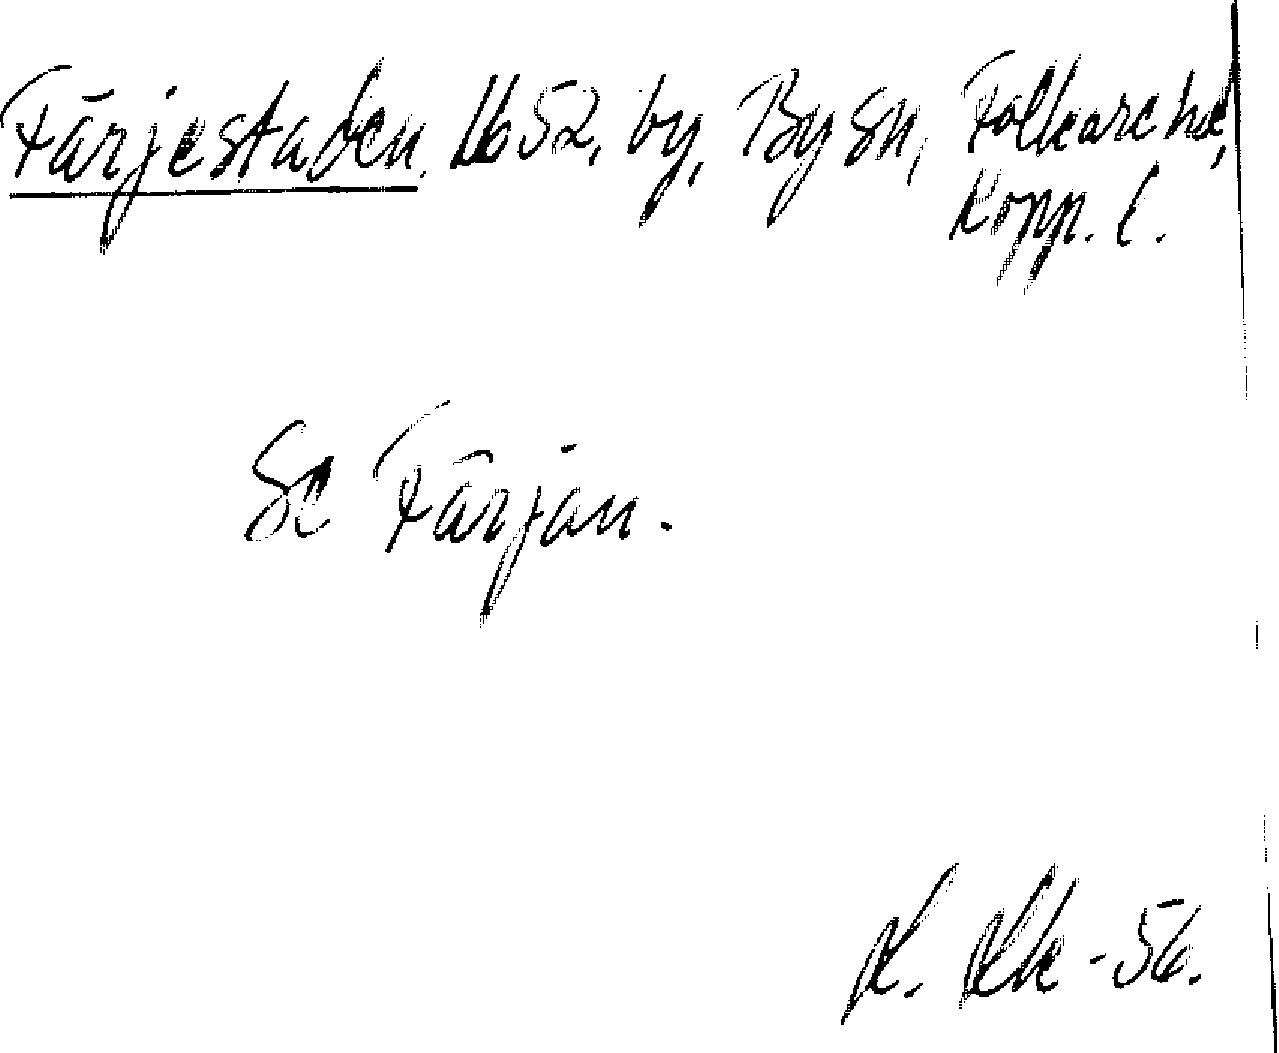 Färjestaden 1652, by, By sn, Folkare hd,
Kopp. l.
Se Färjan.
-56.